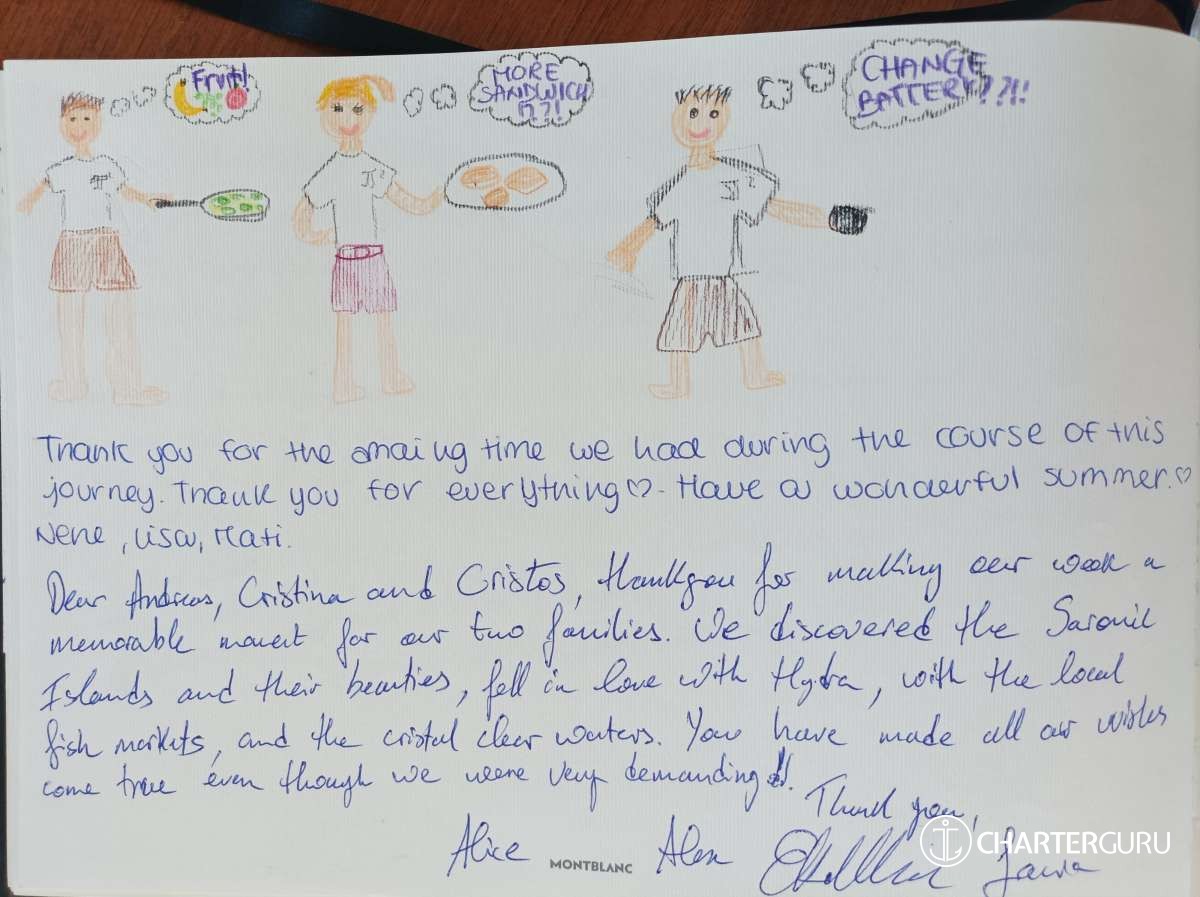 Fruit!
MORE
SANDWICH
?!
CHANGE
BATTERY??!!
Thank you for the amaing time we had during the course of this
journey. Thank you for everything♡. Have a wonderful summer.♡
Nene, Lisa, Mati.
Dear Andreas, Cristina and Cristos, thankyou for making our week a
memorable moment for our two families. We discovered the Saronic
Islands and their beauties, fell in love with Hydra, with the local
fish markets, and the cristal clear waters. You have made all our wishes
come true even though we were very demanding!!.
Thank you,
Alice Alex Laura
MONTBLANC
CHARTERGURU